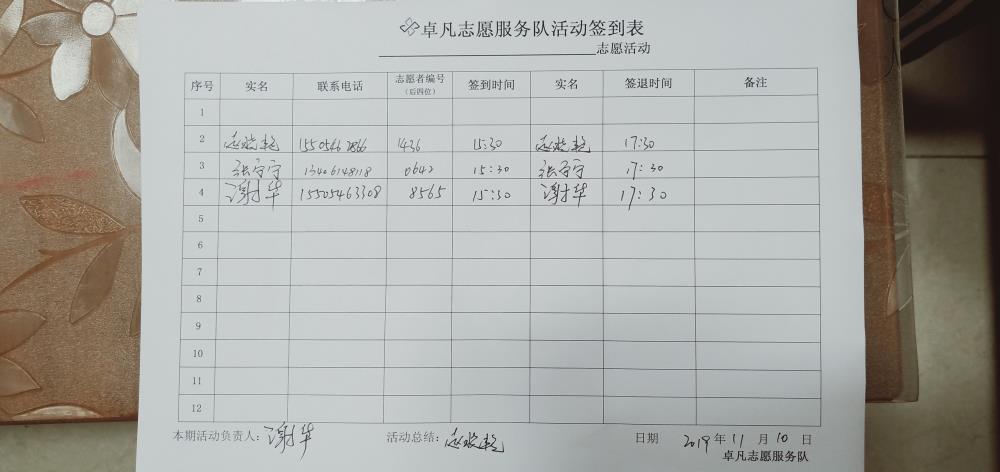 卓凡志愿服务队活动签到表
志愿活动
序号 实名 联系电话 志愿者编号(后四位) 签到时间 实名 签退时间 备注
1
2 1550546 2866 1436 15:30 17:30
3 张守宁 13406148118 0642 15:30 张守宁 17:30
4 谢华 15505463308 8565 15:30 谢华 17:30
5
6
7
8
9
10
11
12
本期活动负责人:谢华 活动总结: 日期 2019年11月10日
卓凡志愿服务队